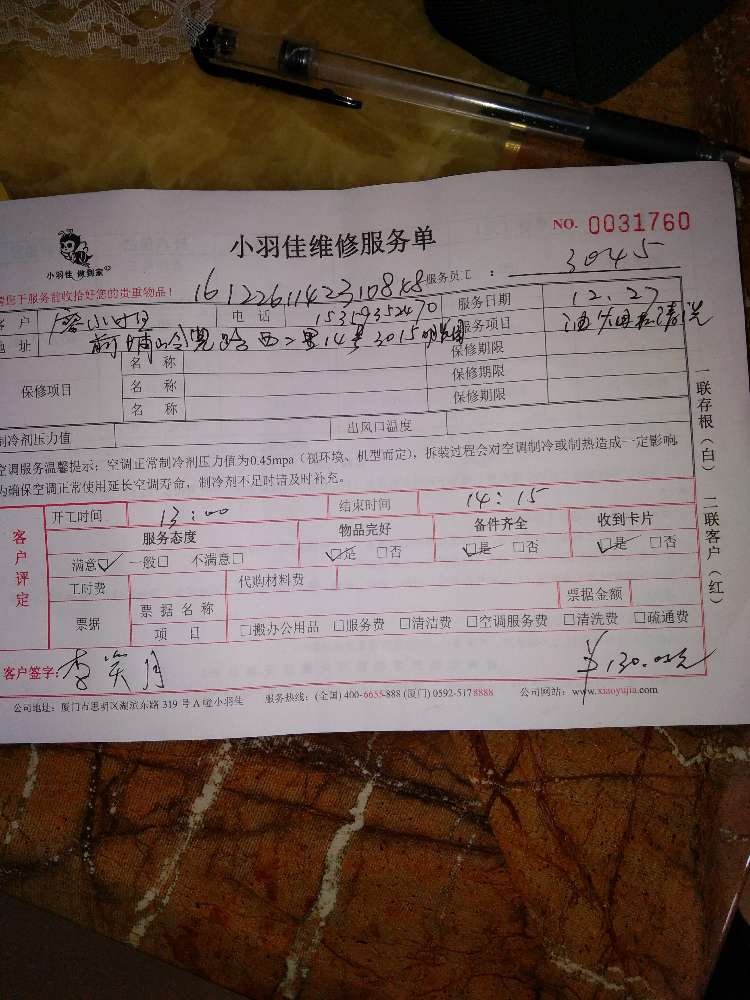 小羽佳维修服务单
NO. 0031760
小羽佳 做到家
您于服务前收拾好您的贵重物品！
服务员工：3045
户 廖小 电话 15359352470 服务日期 12.27
地址 前埔 路西二里14号3015 服务项目 油烟机清洗
保修项目 名称 保修期限
名称 保修期限
名称 保修期限
制冷剂压力值 出风口温度
空调服务温馨提示：空调正常制冷剂压力值为0.45mpa（视环境、机型而定），拆装过程会对空调制冷或制热造成一定影响
为确保空调正常使用延长空调寿命，制冷剂不足时请及时补充。
客户评定
开工时间 13:00 结束时间 14:15
服务态度 物品完好 备件齐全 收到卡片
满意☑ 一般□ 不满意□ ☑是 □否 ☑是 □否 ☑是 □否
工时费 代购材料费
票据 票据名称 票据金额
项目 □搬办公用品 □服务费 □清洁费 □空调服务费 □清洗费 □疏通费
客户签字：李 月 ￥130.00元
公司地址：厦门市思明区湖滨东路 319 号 A 幢小羽佳 服务热线：(全国) 400-6655-888 (厦门) 0592-5178888 公司网站：www.xiaoyujia.com
一联存根（白） 二联客户（红）